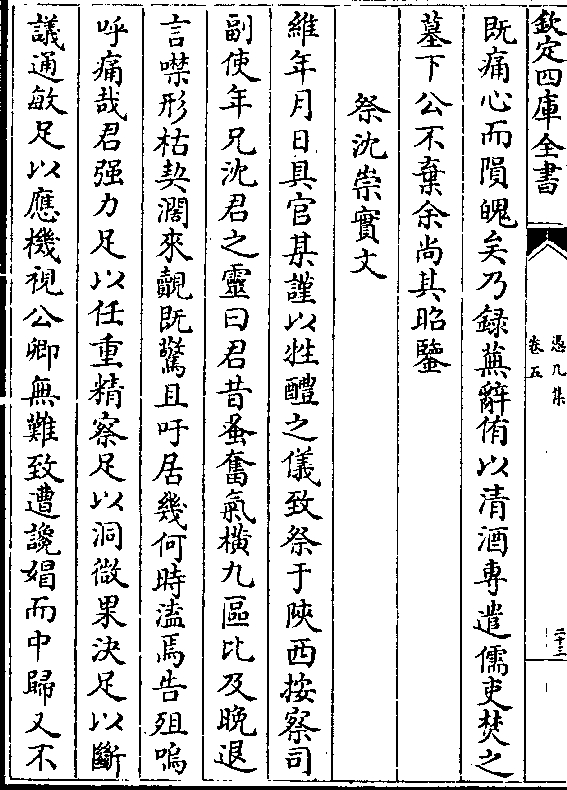 欽定四庫全書
憑几集
卷五
二十三
既痛心而隕魄矣乃録蕪辭侑以清酒專遣儒吏焚之
墓下公不棄余尚其昭鑒
祭沈崇實文
維年月日具官某謹以牲醴之儀致祭于陜西按察司
副使年兄沈君之靈曰君昔蚤奮氣橫九區比及晚退
言噤形枯契濶來覿既驚且吁居幾何時溘焉告殂嗚
呼痛哉君强力足以任重精察足以洞微果決足以斷
議通敏足以應機視公卿無難致遭讒娼而中歸又不